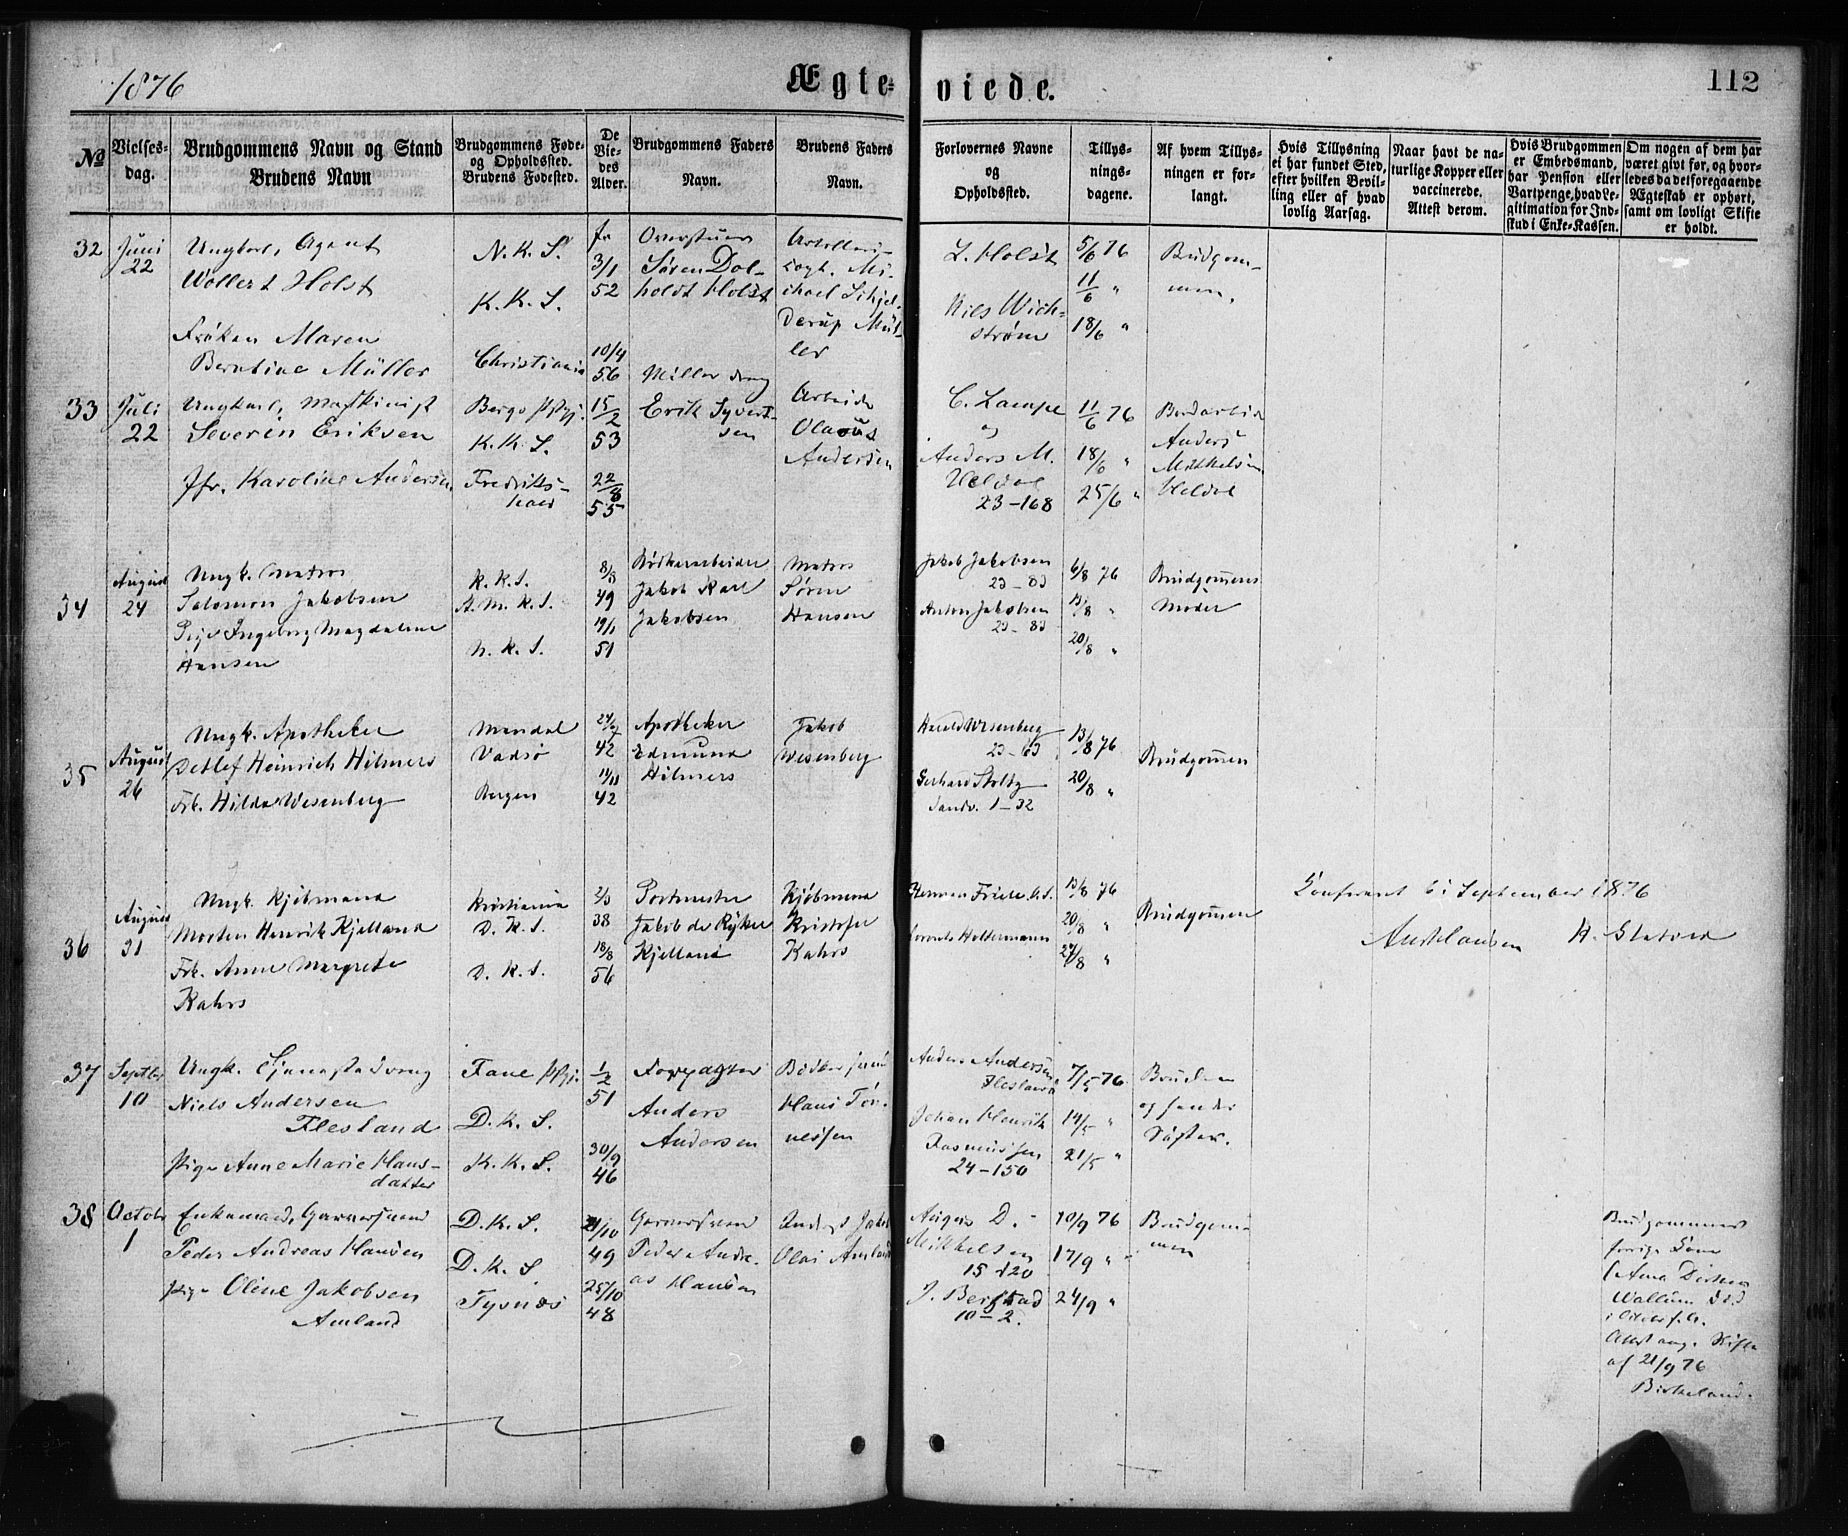 1876
Ægte-
viede.
112
№
Vielses-
dag.
Brudgommens Navn og Stand
Brudens Navn
Brudgommens Føde-
og Opholdssted.
Brudens Fødested.
De
Vie-
des
Alder.
Brudgommens Faders
Navn.
Brudens Faders
Navn.
Forlovernes Navne
og
Opholdssted.
Tillys-
nings-
dagene.
Af hvem Tillys-
ningen er for-
langt.
Hvis Tillysning
ei har fundet Sted,
efter hvilken Bevil-
ling eller af hvad
lovlig Aarsag.
Naar havt de na-
turlige Kopper eller
vaccinerede.
Attest derom.
Hvis Brudgommen
er Embedsmand,
har Pension eller
Vartpenge, hvad Le-
gitimation for Ind-
skud i Enke-Kassen.
Om nogen af dem har
været givt før, og hvor-
ledes da det foregaaende
Ægteskab er ophørt,
samt om lovligt Skifte
er holdt.
32
Juni
22
Ungkarl, Agent
Wollert Holst
Frøken Maren
Berntine Müller
N. K. S.
K. K. S.
Christiania
3/1
52
10/4
56
Søren Dol-
holdt Holst
chael Schjel-
derup Mül-
ler
L. Holst
Nils Wich-
strøm
5/6 76
11/6 "
18/6 "
Brudgom-
men.
33
Juli
22
Ungkarl, Maskinist
Severin Eriksen
Jfr. Karoline Andersen
K. K. S.
Fredriks-
hald
15/2
53
22/8
55
Erik Syvert-
sen
Olaus
Andersen
C. Lampe
og
Anders M.
Heldal
23-168
11/6 76
18/6 "
25/6 "
Anders
Mikkelsen
Heldal
34
August
24
Ungk. Matros
Salomon Jakobsen
Pige Ingeborg Magdalene
Hansen
K. K. S.
N. K. S.
8/8
49
19/1
51
Bødkerarbeider
Jakob Karl
Jakobsen
Matros
Søren
Hansen
Jakob Jakobsen
23-83
Anton Jakobsen
23-83
6/8 76
13/8 "
20/8 "
Brudgommens
Moder
35
August
26
Ungk. Apotheker
Detlef Heinrich Hilmers
Frk. Hilda Wesenberg
Mandal
Vadsø
Bergen
42
42
Apotheker
Edmund
Hilmers
Jakob
Wesenberg
Harald Wesenberg
23-63
Gerhard Stoltz
Sandv. 1-32
13/8 76
20/8 "
Brudgommen
36
August
31
Ungk. Kjøbmand
Morten Henrik Kjelland
Frk. Anne Margrete
Kahrs
Kristiania
D. K. S.
D. K. S.
2/3
38
18/8
56
Postmester
Jakob de Rytker
Kjelland
Kjøbmand
Kristofer
Kahrs
Herman Friele
Holtermann
13/8 76
20/8 "
27/8 "
Brudgommen
Konfereret 6 i September 1876
37
Septbr
10
Ungk. Tjenestedreng
Niels Andersen
Flesland
Pige Anne Marie Hans-
datter
Fane Prgj.
D. K. S.
K. K. S.
1/2
51
30/9
46
Forpagter
Anders
Andersen
Bødkersvend
Hans Tør-
nesen
Anders Andersen
Flesland
Johan Henrik
Rasmussen
24-150
7/5 76
14/5 "
21/5 "
Bruden
og hendes
Søster.
38
Octobr
1
Enkemand, Garversvend
Peder Andreas Hansen
Pige Oline Jakobsen
Amland
D. K. S.
D. K. S
Tysnæs
49
25/10
48
Garversvend
Peder Andre-
as Hansen
Olai Amland
August D.
Mikkelsen
15-120
J. Berstad
10-2.
10/9 76
17/9 "
24/9 "
Brudgom-
men
Brudgommens
forrige Kone
Wallum død
af 21/9 76
Birkeland.